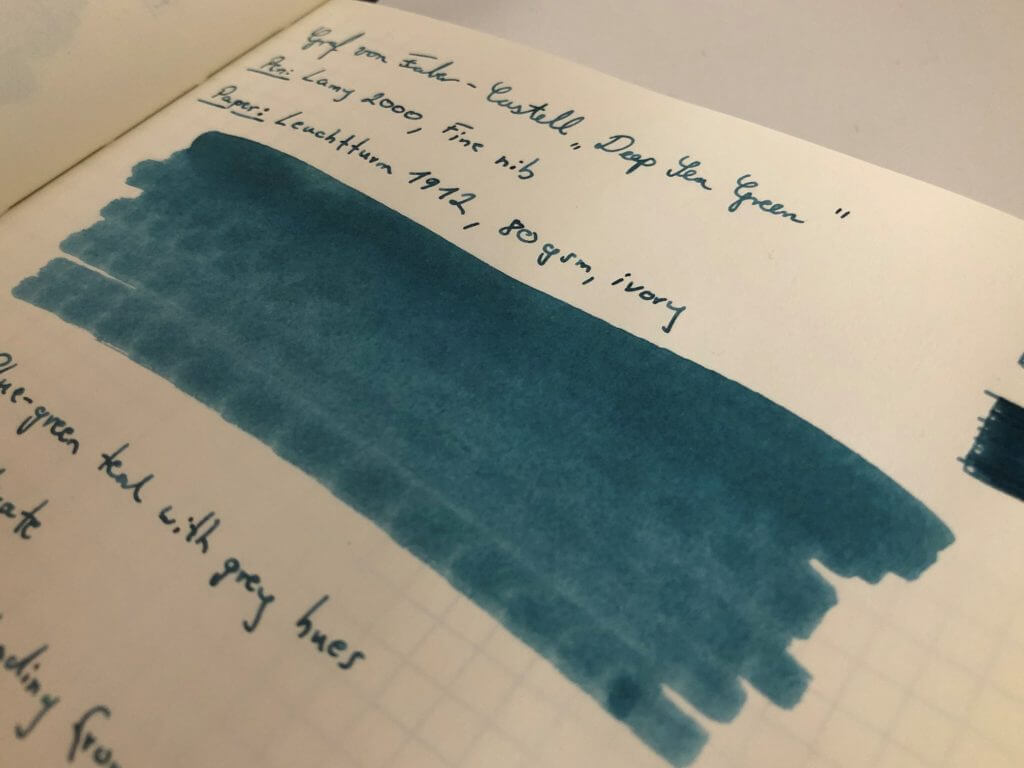 Graf von Faber-Castell „Deep Sea Green"
Pen: Lamy 2000, Fine nib
Paper: Leuchtturm 1912, 80gsm, ivory
blue-green teal with grey hues